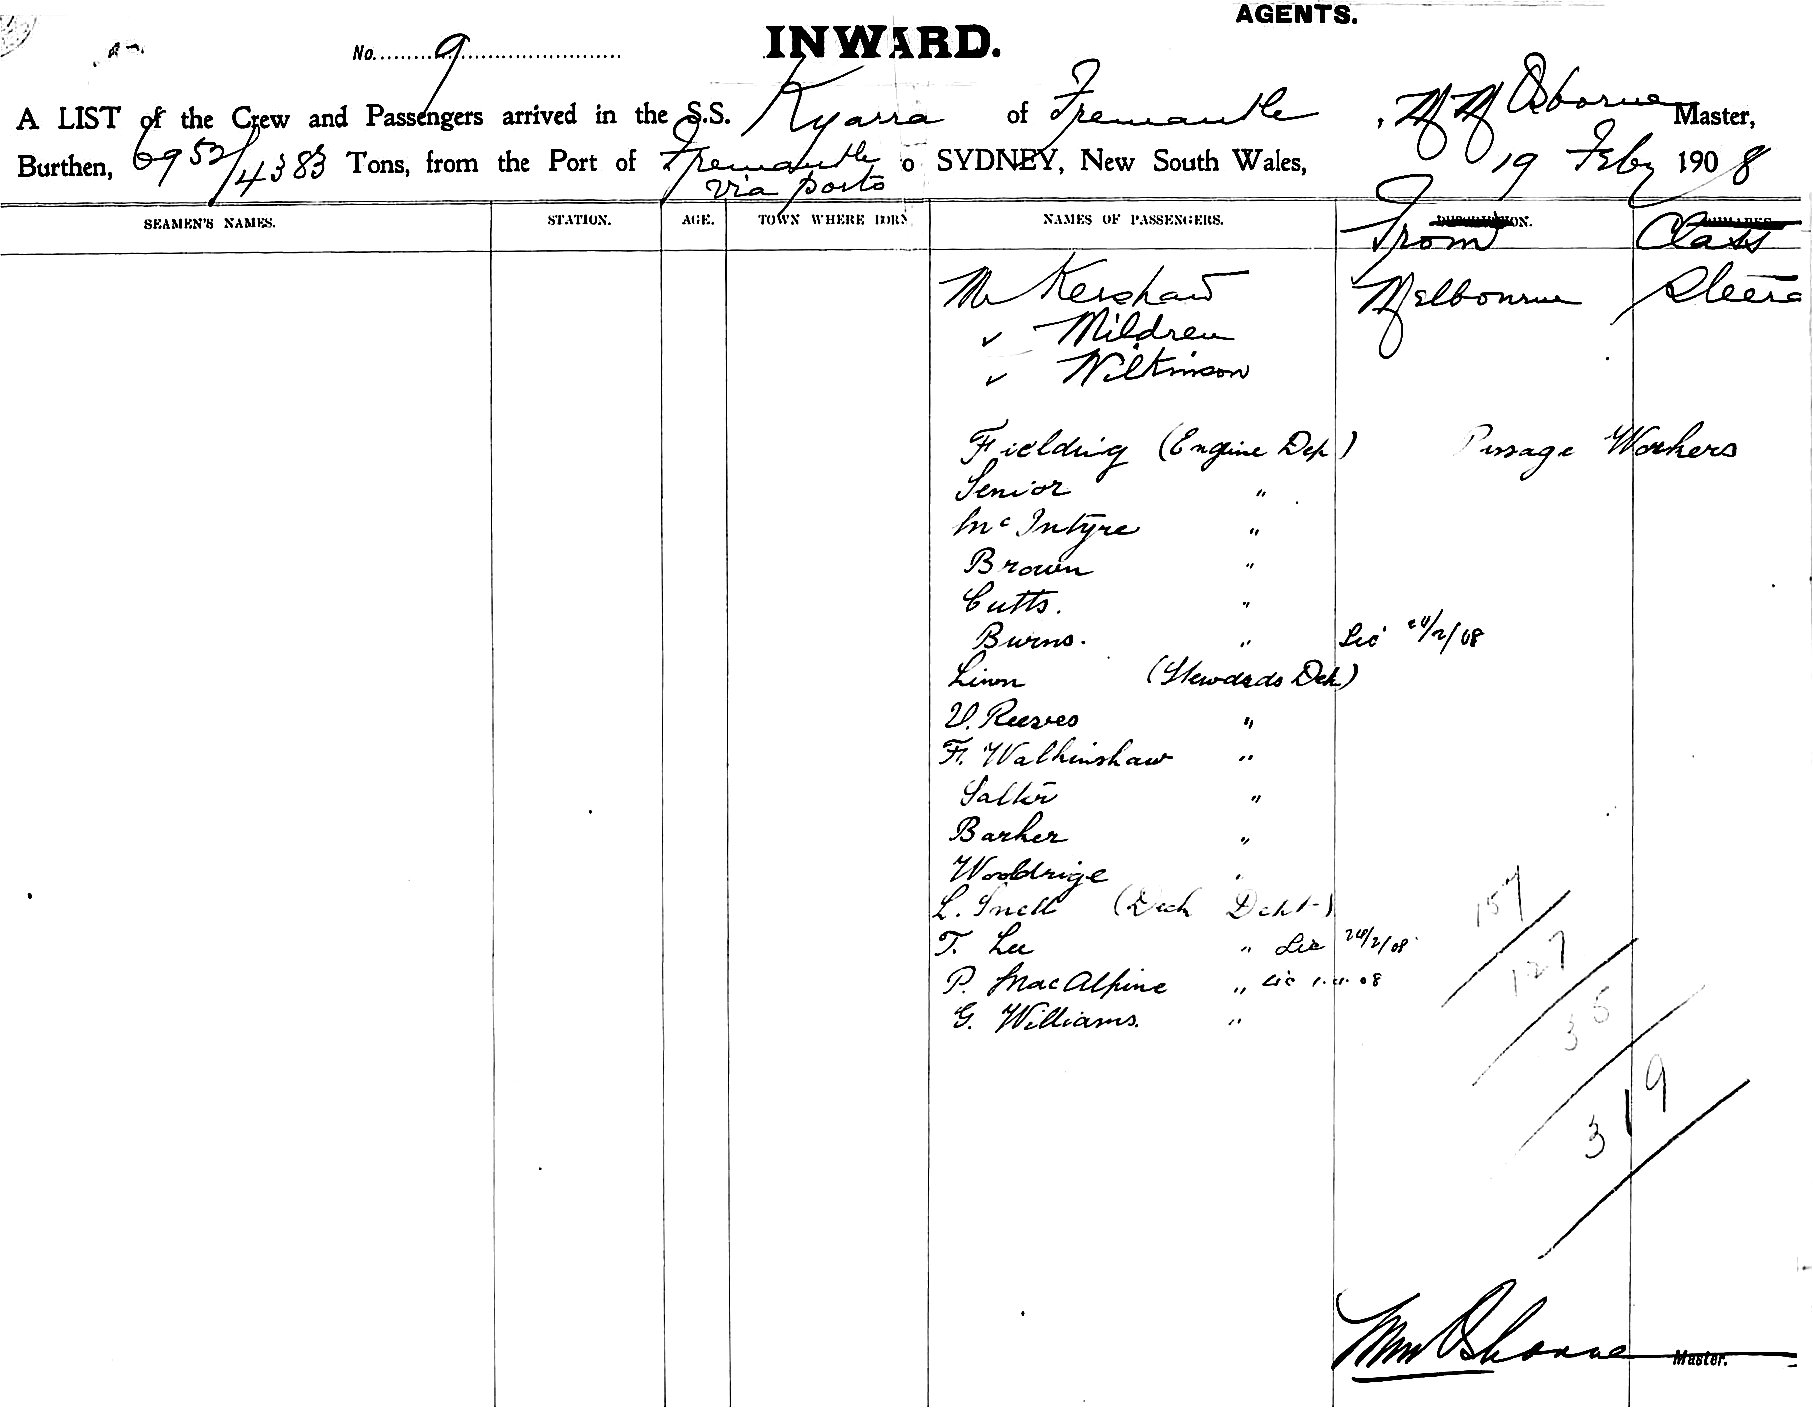 AGENTS.
No. 9 INWARD.
A LIST of the Crew and Passengers arrived in the S.S. Kyarra of Fremantle, M M Osborne Master,
Burthen, 6952/4383 Tons, from the Port of Fremantle via ports o SYDNEY, New South Wales, 19 Feby 1908
SEAMEN'S NAMES. STATION. AGE. TOWN WHERE BORN NAMES OF PASSENGERS. From Class
Mr Kershaw Melbourne Steera
" Mildren
" Wilkinson
Fielding (Engine Dep) Passage Workers
Senior "
McIntyre "
Brown "
Cutts. "
Burns. " Lic /2/08
Linn (Stewards Dek)
V. Reeves "
F. Walkinshaw "
Salter "
Barker "
Wooldrige "
L. Snell (Deck Dept)
T. Lee " Lic 24/2/08
P. MacAlpine " Lic 08
G. Williams. "
157
127
35
319
Osborne Master.